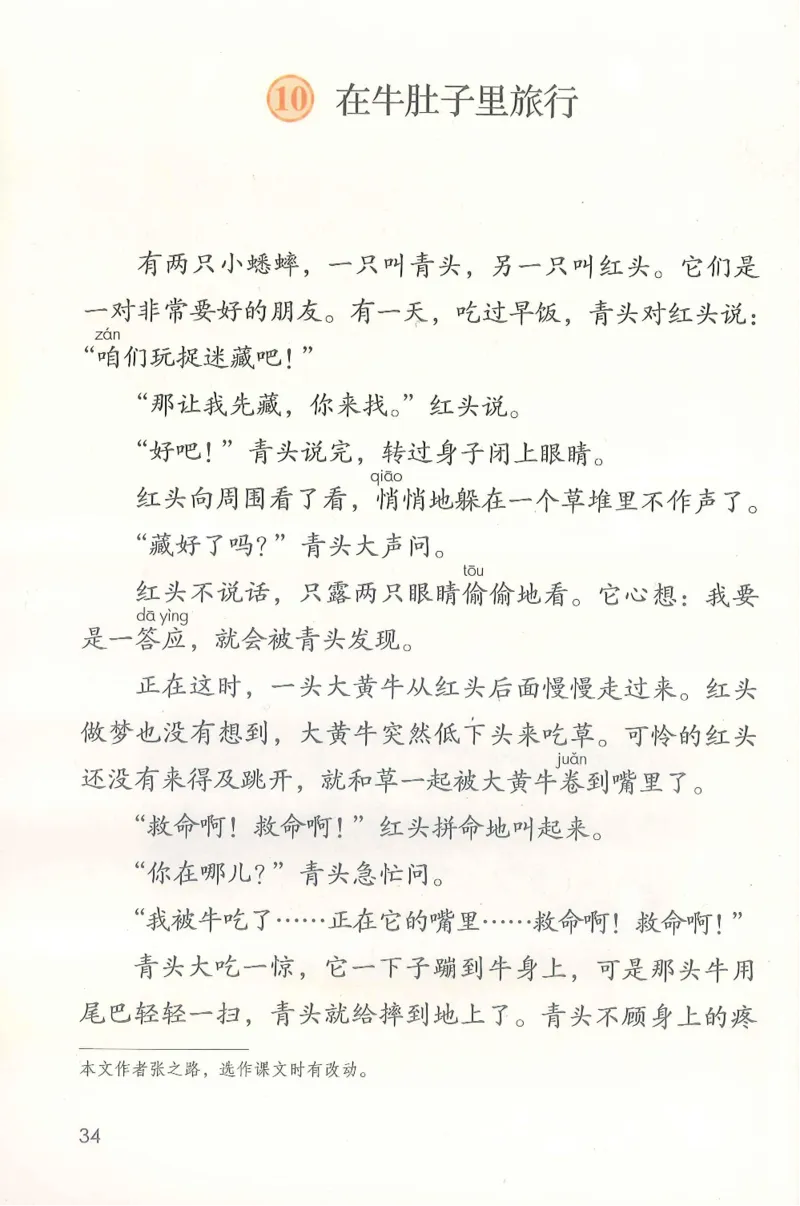 10 在牛肚子里旅行
有两只小蟋蟀，一只叫青头，另一只叫红头。它们是
一对非常要好的朋友。有一天，吃过早饭，青头对红头说：
zán
“咱们玩捉迷藏吧！”
“那让我先藏，你来找。”红头说。
“好吧！”青头说完，转过身子闭上眼睛。
qiāo
红头向周围看了看，悄悄地躲在一个草堆里不作声了。
“藏好了吗？”青头大声问。
tōu
红头不说话，只露两只眼睛偷偷地看。它心想：我要
dā yìng
是一答应，就会被青头发现。
正在这时，一头大黄牛从红头后面慢慢走过来。红头
做梦也没有想到，大黄牛突然低下头来吃草。可怜的红头
juǎn
还没有来得及跳开，就和草一起被大黄牛卷到嘴里了。
“救命啊！救命啊！”红头拼命地叫起来。
“你在哪儿？”青头急忙问。
“我被牛吃了……正在它的嘴里……救命啊！救命啊！”
青头大吃一惊，它一下子蹦到牛身上，可是那头牛用
尾巴轻轻一扫，青头就给摔到地上了。青头不顾身上的疼
本文作者张之路，选作课文时有改动。
34